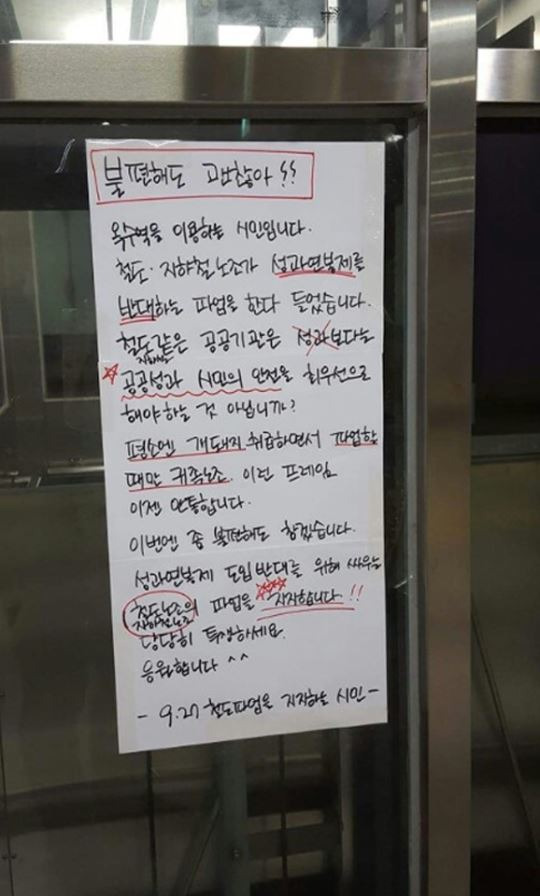 불편해도 괜찮아!!
옥수역을 이용하는 시민입니다.
철도·지하철노조가 성과연봉제를
반대하는 파업을 한다 들었습니다.
철도같은 공공기관은 성과보다는
지하철
☆ 공공성과 시민의 안전을 최우선으로
해야하는 것 아닙니까?
평소엔 개돼지 취급하면서 파업할
때만 귀족노조. 이런 프레임
이젠 안통합니다.
이번엔 좀 불편해도 참겠습니다.
성과연봉제 도입반대를 위해 싸우는
철도노조의 파업을 지지합니다.!!
지하철노조
당당히 투쟁하세요.
응원합니다 ^^
- 9.27 철도파업을 지지하는 시민 -